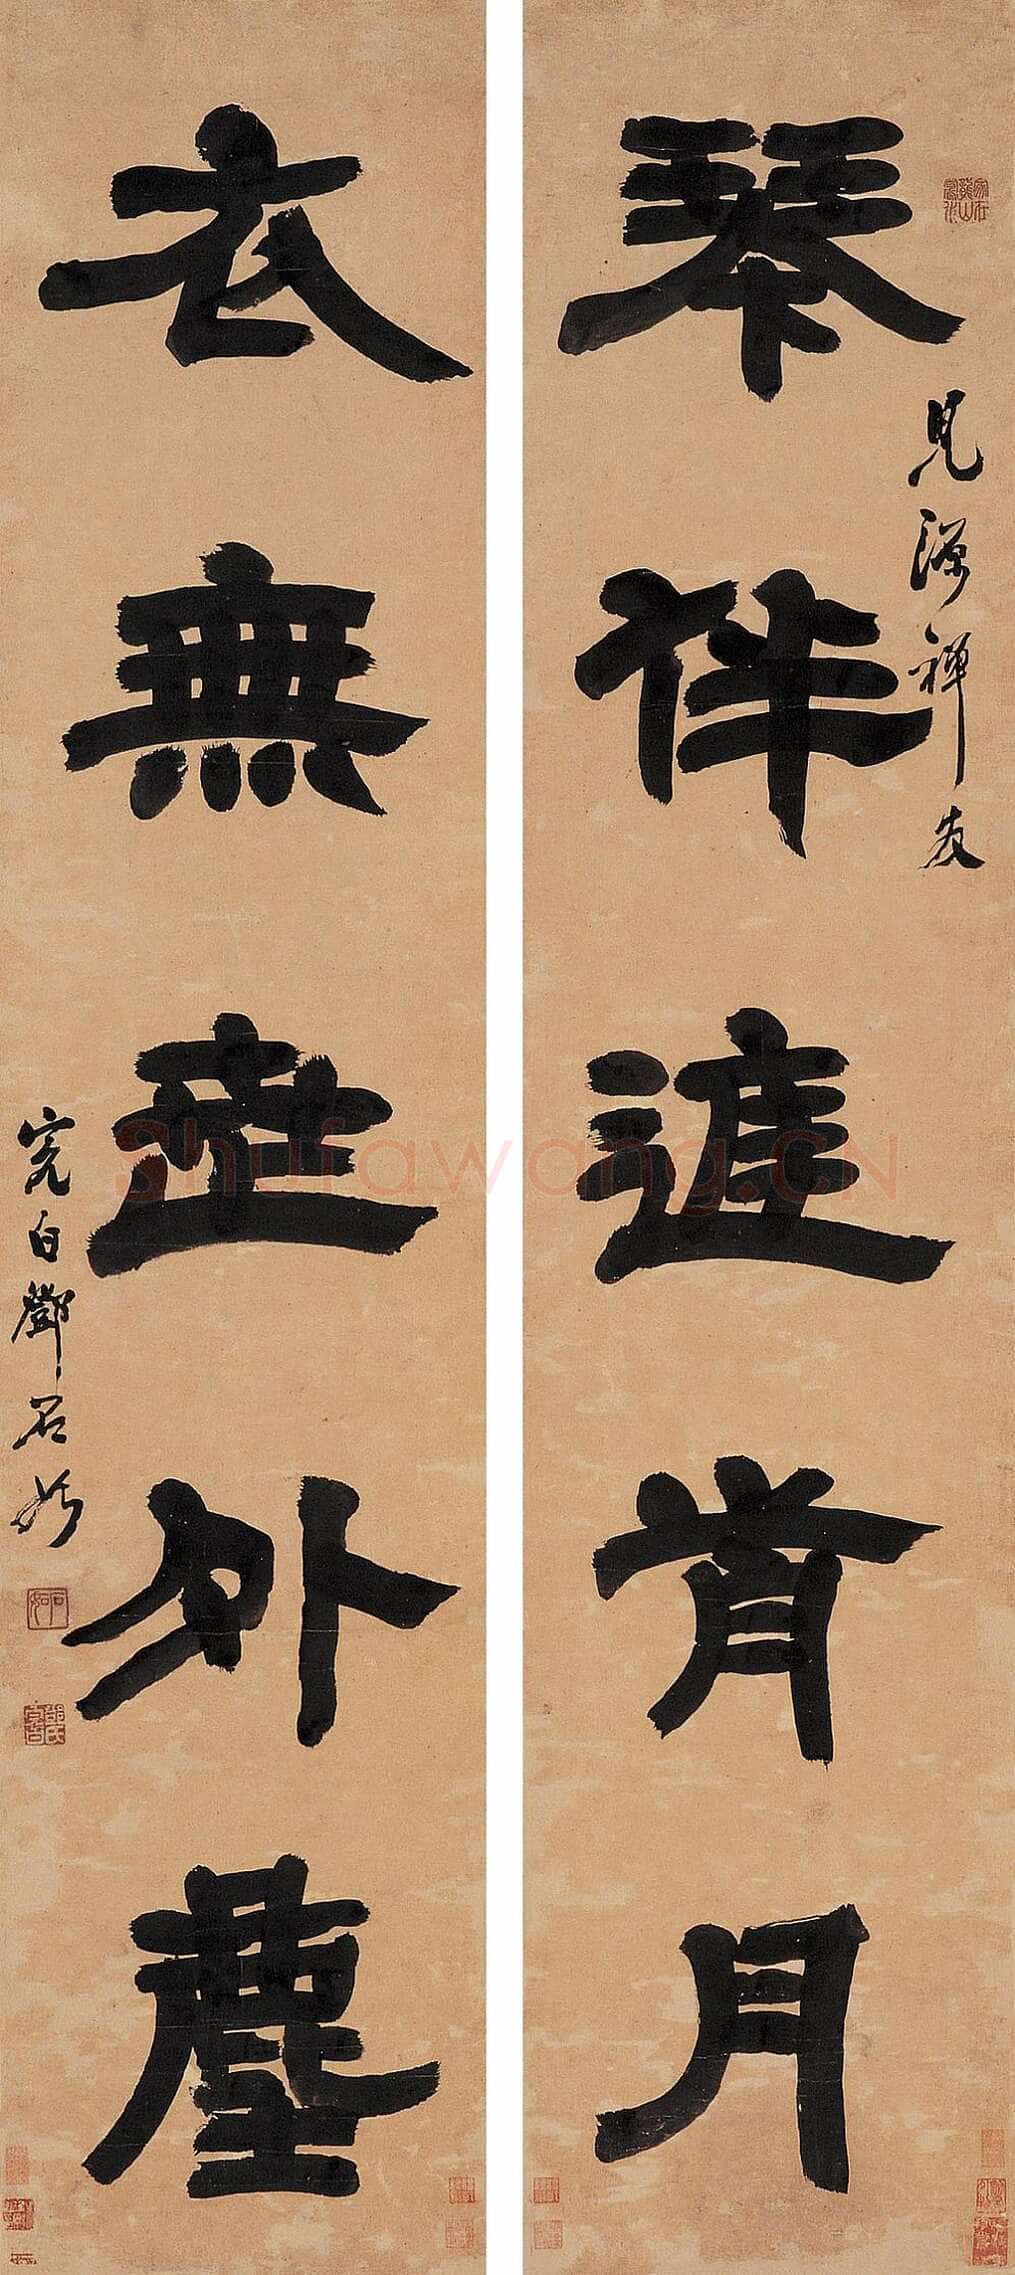 見源禪友
琴伴進月
衣無外塵
完白鄧石如
石如
Shufawang.CN